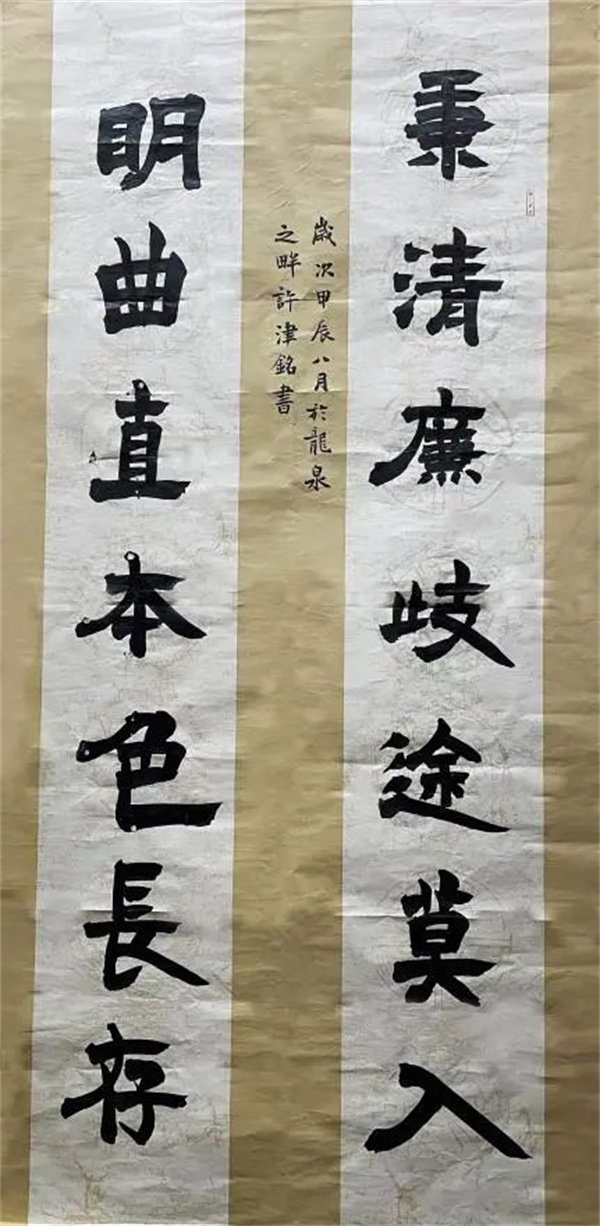 秉清廉歧途莫入
歲次甲辰八月於龍泉
之畔許津銘書
明曲直本色長存